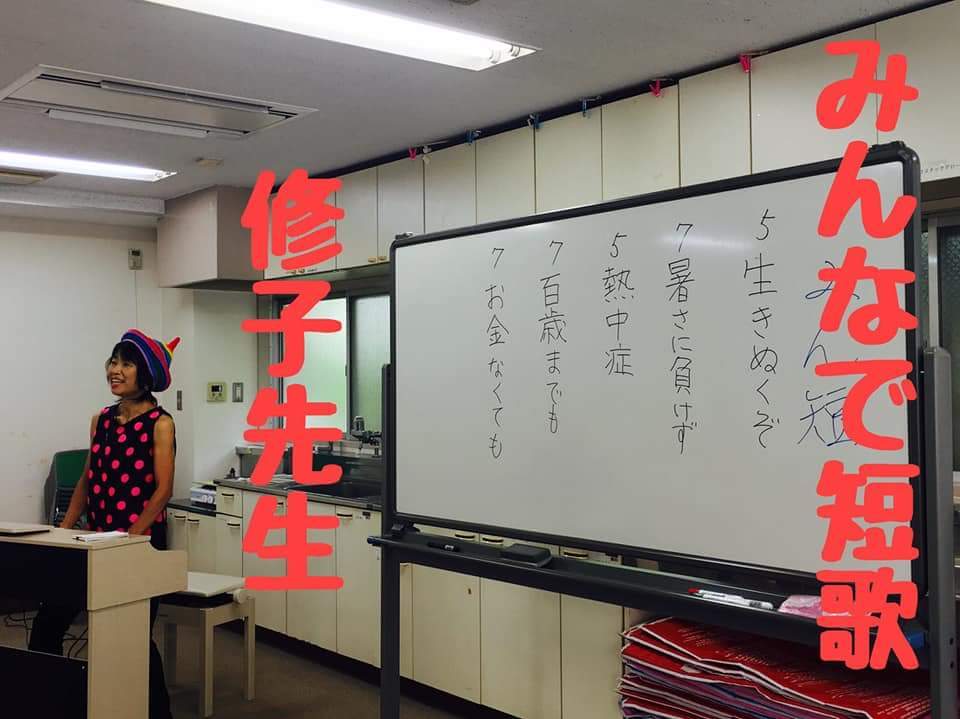 みんなで短歌
みん短
5 生きぬくぞ
7 暑さに負けず
5 熱中症
7 百歳までも
7 お金なくても
修子先生